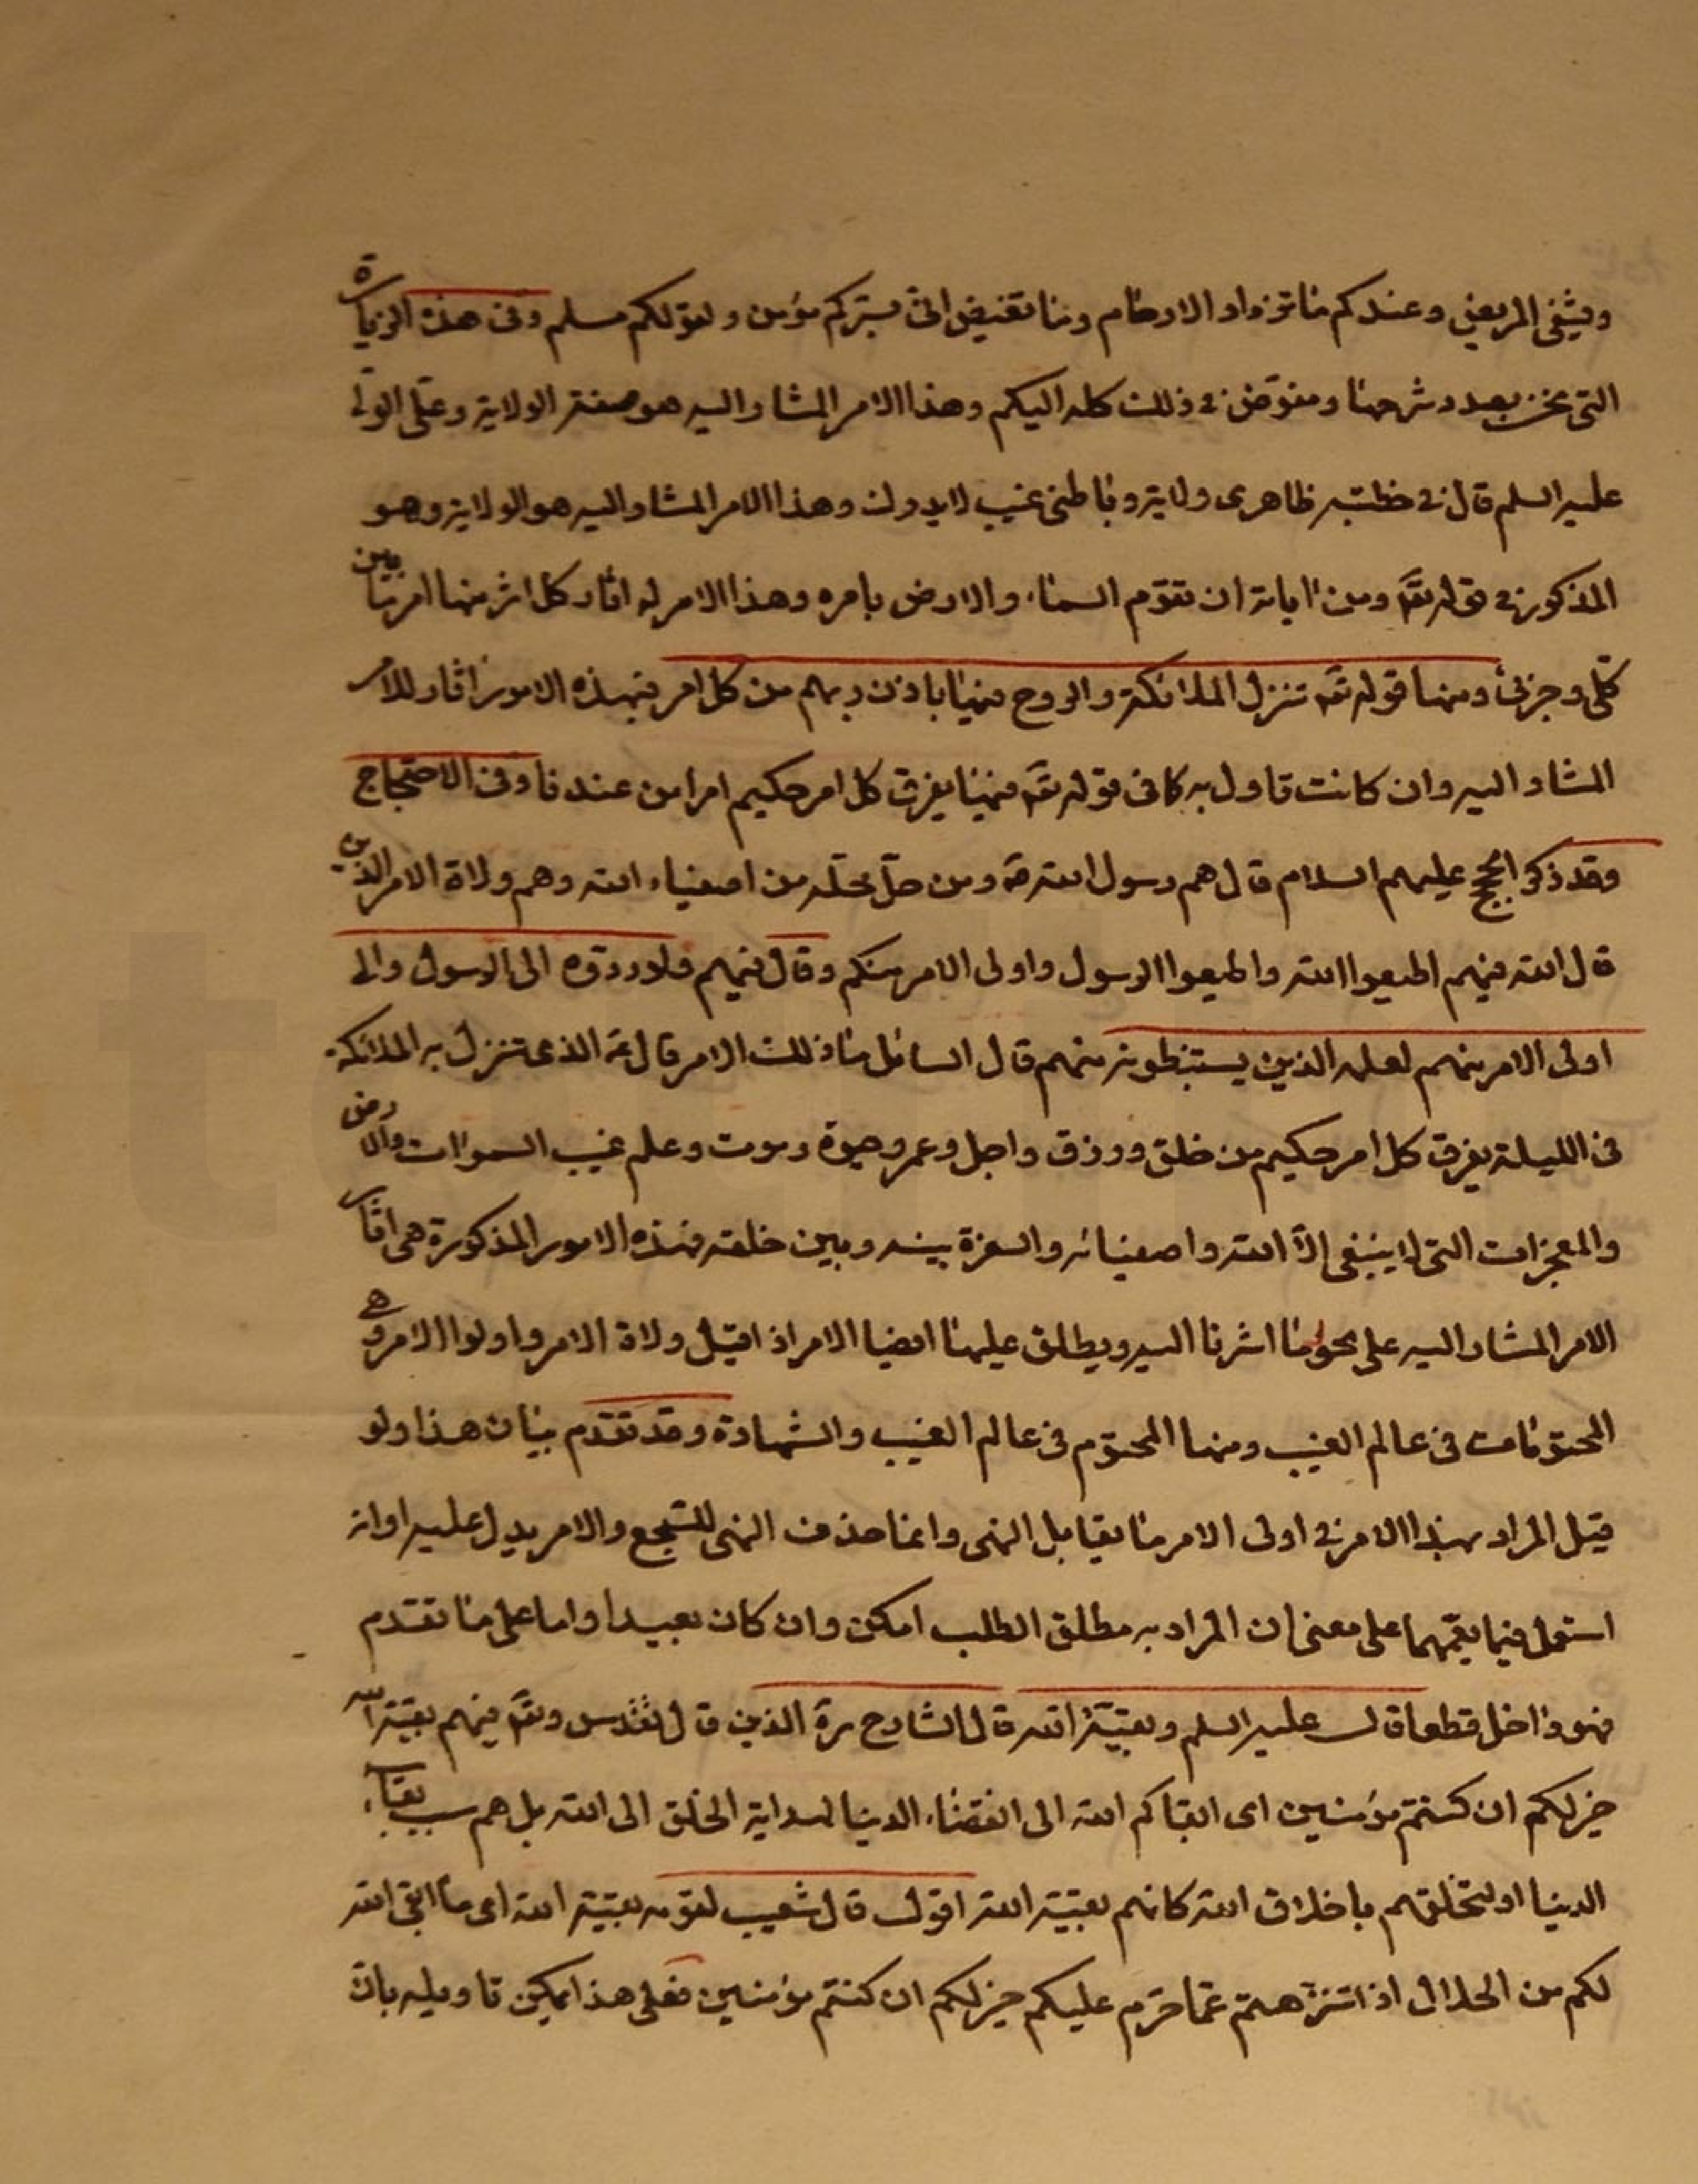 ويشفى المريض وعندكم ما تزداد الارحام وما تغيض انى بسركم مؤمن ولقولكم مسلم وفى هذه الزيارة
التى نحن بصدد شرحها ومفوّض فى ذلك كله اليكم وهذا الامر المشار اليه هو صفة الولاية وعلى الولى
عليه السلم قال فى خطبته ظاهرى ولاية وباطنى غيب لا يدرك وهذا الامر المشار اليه هو الولاية وهو
المذكور فى قوله تعه ومن اياته ان تقوم السماء والارض بامره وهذا الامر له اثار كل اثر منها امر ما بين
كلّى وجزئى ومنها قوله تعه تنزل الملائكة والروح فيها باذن ربهم من كل امر فهذه الامور اثار للامر
المشار اليه وان كانت تاول به كما فى قوله تعه فيها يفرق كل امر حكيم امرا من عندنا وفى الاحتجاج
وقد ذكر الحجج عليهم السلام قال هم رسول الله ص ومن حلّ محلّه من اصفياء الله وهم ولاة الامر الذين
قال الله فيهم اطيعوا الله واطيعوا الرسول واولى الامر منكم وقال فيهم ولو ردّوه الى الرسول والى
اولى الامر منهم لعلمه الذين يستنبطونه منهم قال السائل ما ذلك الامر قال ع الذى تنزل به الملائكة
فى الليلة يفرق كل امر حكيم من خلق ورزق واجل وعمر وحيوة وموت وعلم غيب السموات والارض
والمعجزات التى لا ينبغى الّا الله واصفيائه والسفرة بينه وبين خلقه فهذه الامور المذكورة هى اثار
الامر المشار اليه على نحو ما اشرنا اليه ويطلق عليها ايضا الامر اذ اقيل ولاة الامر واولوا الامر وهى
المحتومات فى عالم الغيب ومنها المحتوم فى عالم الغيب والشهادة وقد تقدم بيان هذا ولو
قيل المراد بهذا الامر فى اولى الامر ما يقابل النهى وانما حذف النهى للسّجع والامر يدل عليه اوانه
استعمل فيما يعمّهما على معنى ان المراد به مطلق الطلب امكن وان كان بعيدا واما على ما تقدم
فهو داخل قطعا قال عليه السلم وبقيّة الله قال الشارح ره الذين قال تقدس وتعه فيهم بقية الله
خير لكم ان كنتم مؤمنين اى ابقاكم الله الى انقضاء الدنيا لهداية الخلق الى الله بل هم سبب بقاء
الدنيا او لتخلقهم باخلاق الله كانهم بقية الله اقول قال شعيب لقومه بقية الله اى ما ابقى الله
لكم من الحلال اذا تنزّهتم عمّا حرّم عليكم خير لكم ان كنتم مؤمنين فعلى هذا يمكن تاويله بان